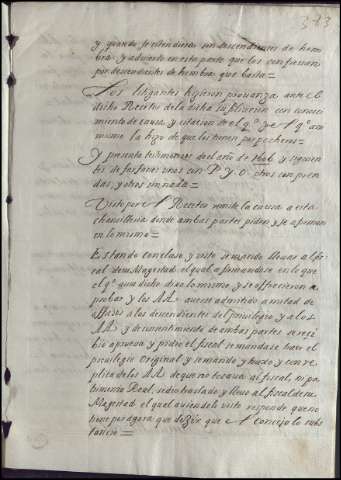 313
y quando pretendieran son descendientes de hem
bra, y advierte en esta parte que los confiessan
por descendientes de hembra, que basta=
Los litigantes hizieron provanza ante el
dicho Recetor de la dicha con conoci
miento de causa y citacion de el q.º y el q.º ass
mismo la hizo de que los tienen por pecheros=
Y presenta testimonios del año de 1606 y siguien
tes de unos con P. y O. otros con pren
das, y otros sin nada=
Visto por el Recetor remite la causa a esta
chancilleria donde ambas partes piden y se afirman
en lo mismo=
Estando concluso, y visto se mando llevar al fis
cal de su Magestad, el qual afirmandose en lo que
el q.º avia dicho dixo lo mismo, y se offrecieron a
probar y los AA. averse admitido a mitad de
officios a los descendientes del privilegio y a los
AA. y de consentimiento de ambas partes se reci
bio a prueva y pidio el fiscal se mandase traer el
privilegio original y se mando y truxo y con re
plica de los AA. de que no tocava al fiscal, ni pa
trimonio Real, se dio traslado y llevo al fiscal de su
Magestad el qual aviendolo visto responde que no
tiene por agora que dezir que el Concejo lo subs
tancie=